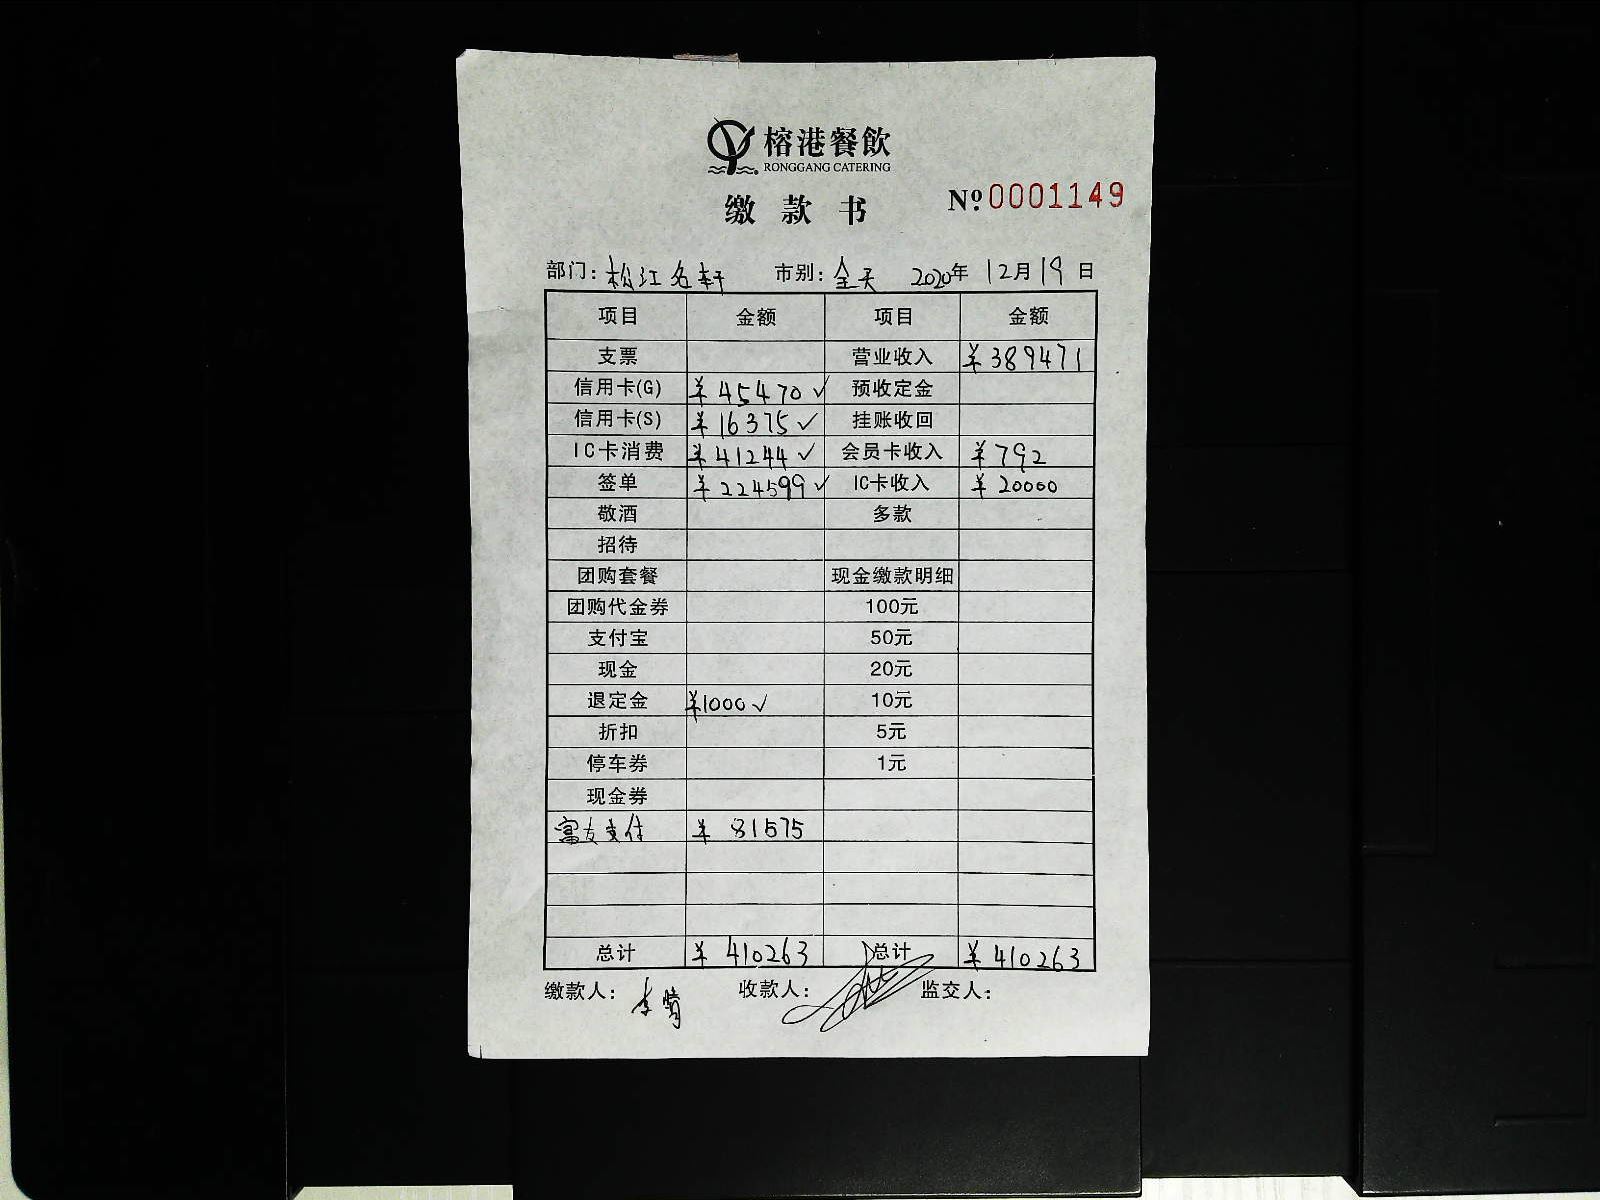 榕港餐飲
RONGGANG CATERING
缴款书
№0001149
部门：松江名轩 市别：全天 2020年12月19日
项目 金额 项目 金额
支票 营业收入 ¥389471
信用卡(G) ¥45470✓ 预收定金
信用卡(S) ¥16375✓ 挂账收回
IC卡消费 ¥41244✓ 会员卡收入 ¥792
签单 ¥224599✓ IC卡收入 ¥20000
敬酒 多款
招待
团购套餐 现金缴款明细
团购代金券 100元
支付宝 50元
现金 20元
退定金 ¥1000✓ 10元
折扣 5元
停车券 1元
现金券
富友支付 ¥81575
总计 ¥410263 总计 ¥410263
缴款人： 收款人： 监交人：